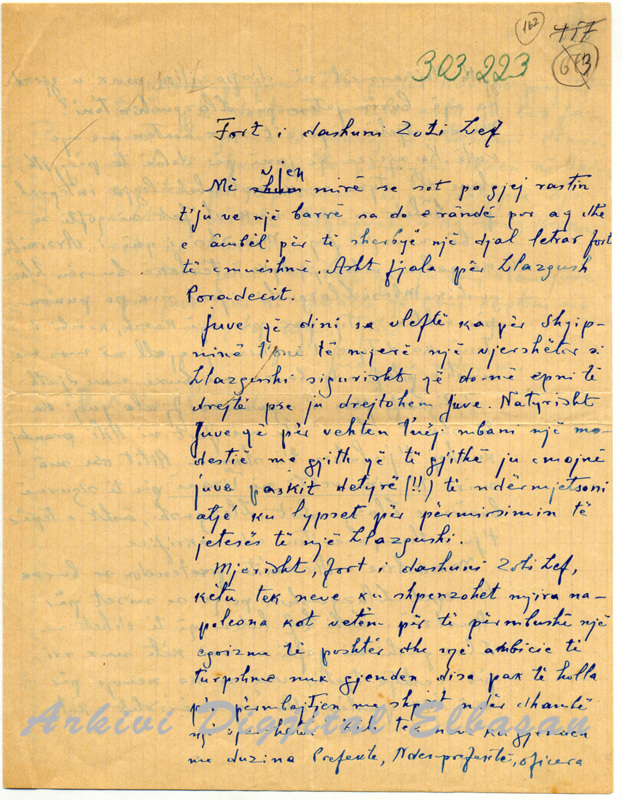 162
303.223
Fort i dashuni Zoti Lef
jen
Më shum mirë se sot po gjej rastin
t'ju ve një barrë sa do e rândë por aq dhe
e âmbël për të sherbyë një djal letrar fort
të çmueshmë. Asht fjala për Llazgush
Poradecit.
Juve që dini sa vleftë ka për Shqip-
ninë t'onë të mjerë një vjershëtor si
Llazgushi sigurisht që do më epni të
drejtë pse ju drejtohem Juve. Natyrisht
Juve që për vehten t'uej mbani një mo-
destië me gjith që të gjithë ju çmojnë
juve paskit detyrë (!!) të ndërmjetsoni
atjé ku lypset për përmirsimin të
jetesës të një Llazgushi.
Mjerisht, fort i dashuni Zoti Lef,
këtu tek neve ku shpenzohet mijra na-
poleona kot vetëm për të përmbushë një
egoizmë të poshtër dhe një ambicie të
turpshme nuk gjenden disa pak të holla
për me shpirt
një tek neve ku gjenden
me duzina Prefektë, Nënprefektë, oficera
Arkivi Digjital Elbasan